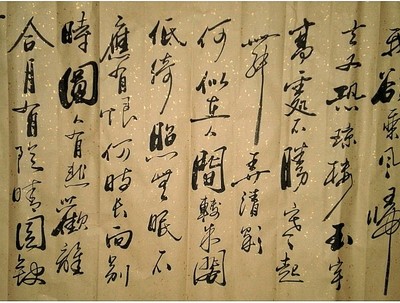 我欲乘風歸
去又恐琼樓玉宇
高處不勝寒起
舞弄清影
何似在人間轉朱閣
低綺照無眠不
應有恨何時長向别
時圓人有悲歡離
合月有陰晴圓缺